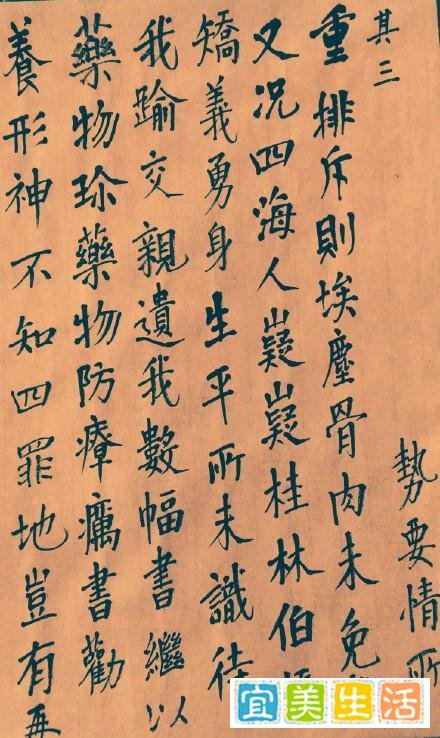 其三
勢要情所
重排斥則埃塵骨肉未免
又况四海人嶷嶷桂林伯
矯義勇身生平所未識待
我踰交親遺我數幅書繼以
藥物珍藥物防瘴癘書勸
養形神不知四罪地豈有再
宜美生活